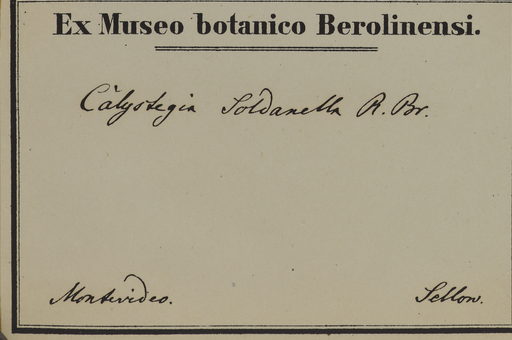 Ex Museo botanico Berolinensi.
Calystegia Soldanella R. Br.
Montevideo. Sellow.